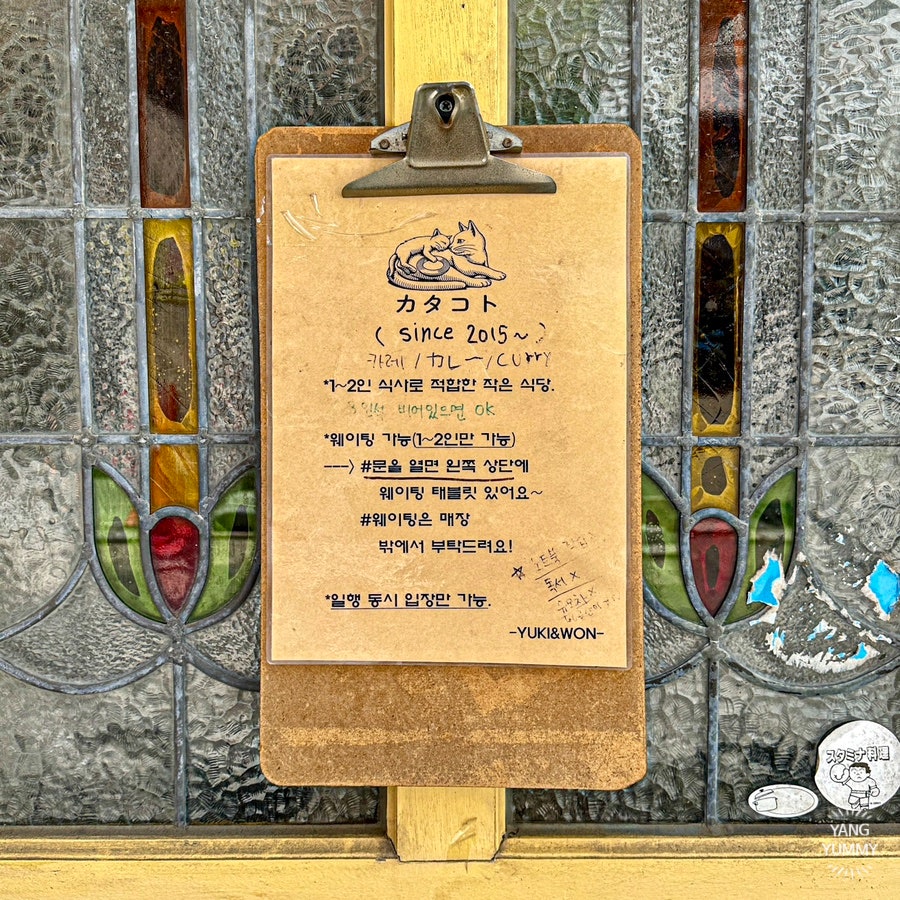 カタコト
( since 2015~ )
카레 / カレー / curry
*1~2인 식사로 적합한 작은 식당.
비어있으면 OK
*웨이팅 가능(1~2인만 가능)
---> #문을 열면 왼쪽 상단에
웨이팅 태블릿 있어요~
#웨이팅은 매장
밖에서 부탁드려요!
☆ 노트북
독서 x
유모차 x
*일행 동시 입장만 가능.
-YUKI&WON-
スタミナ料理
YANG
YUMMY